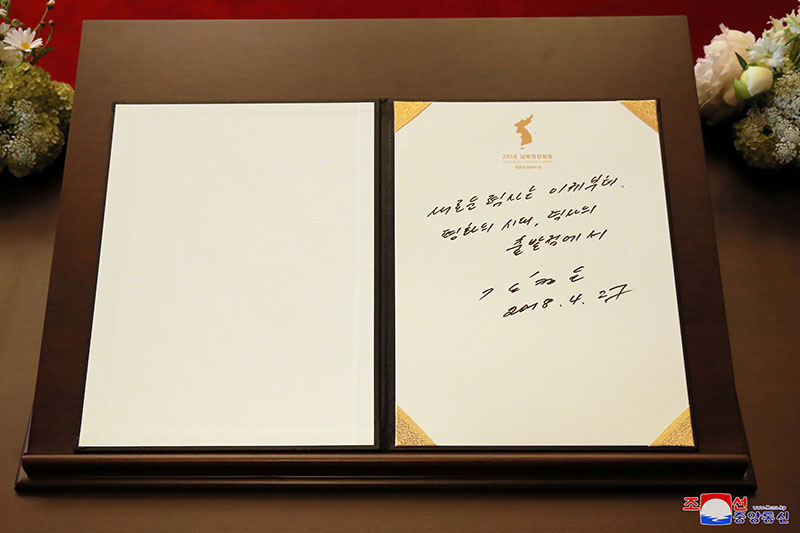 2018 남북정상회담
판문점 평화의 집
새로운 력사는 이제부터.
평화의 시대, 력사의
출발점에서
김정은
2018. 4. 27
www.kcna.kp
조선
중앙통신